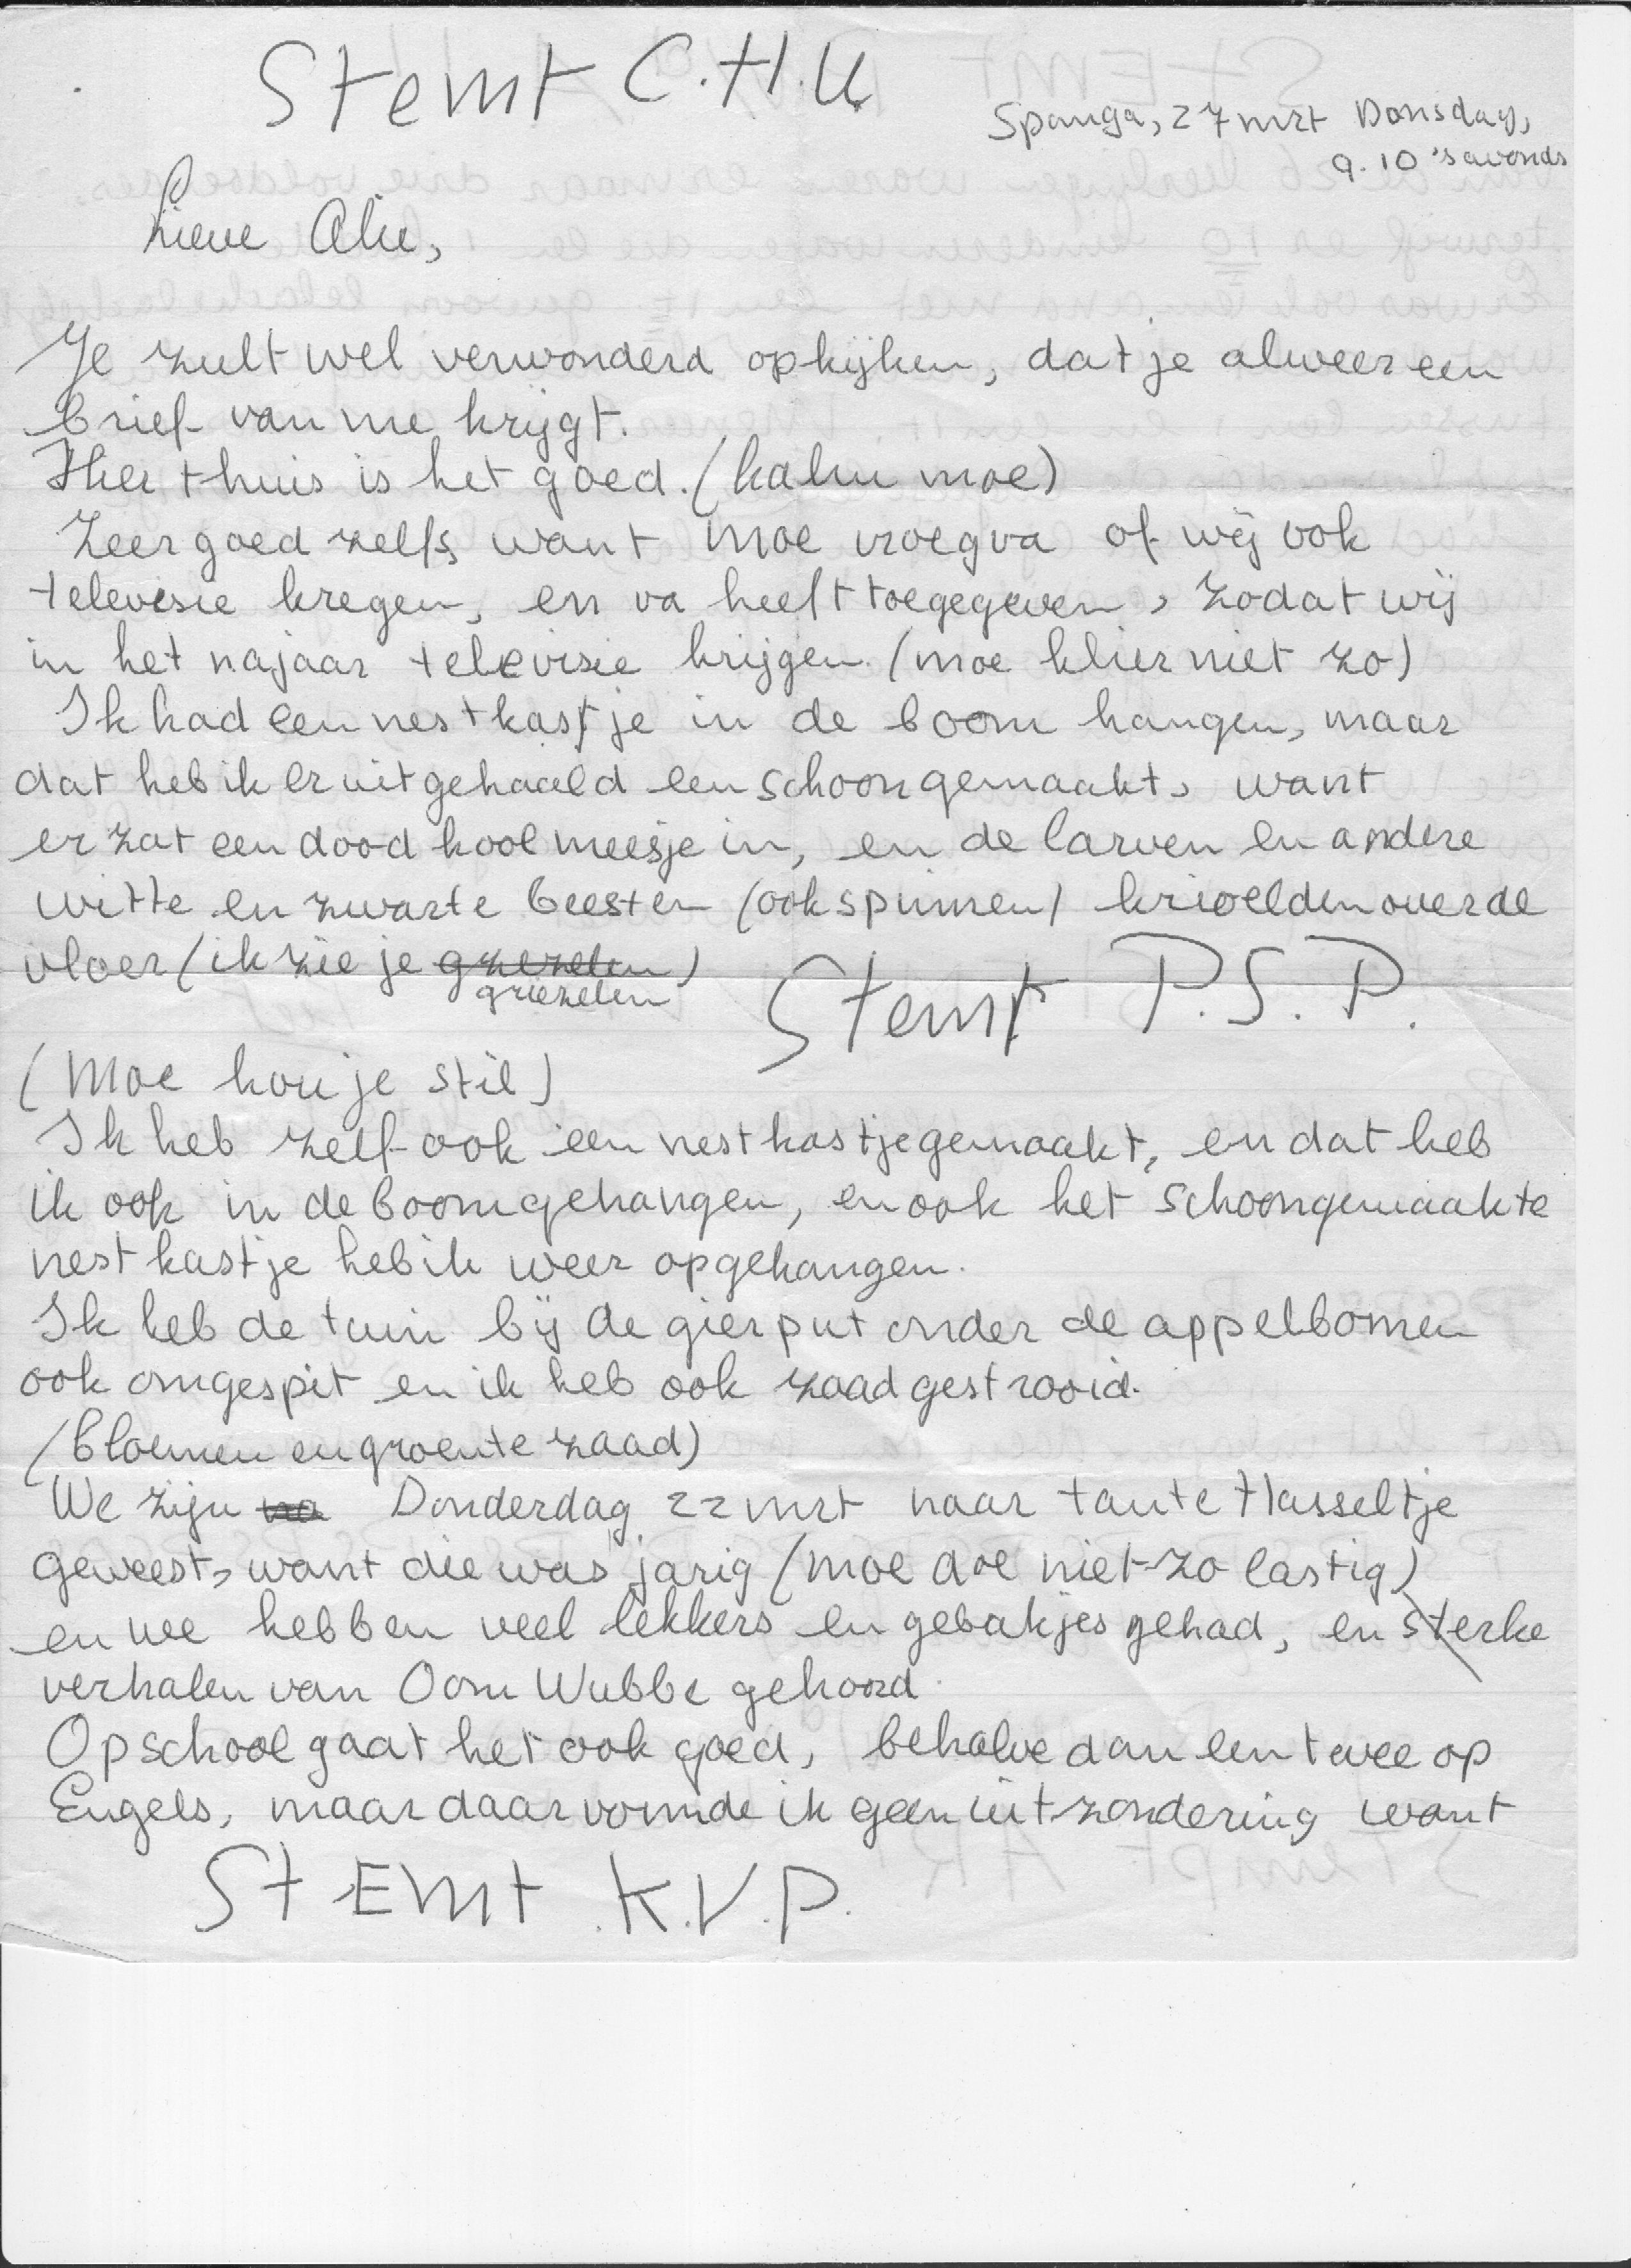 Stemt C.H.U.
Spanga, 27 mrt Donsdag,
9.10 's avonds
Lieve Alie,
Je zult wel verwonderd opkijken, dat je alweer een
brief van me krijgt.
Hier thuis is het goed. (kalm moe)
Zeer goed zelfs want moe vroeg va of wij ook
televisie kregen, en va heeft toegegeven, zodat wij
in het najaar televisie krijgen. (moe klier niet zo)
Ik had een nestkastje in de boom hangen, maar
dat heb ik er uitgehaald een schoongemaakt, want
er zat een dood koolmeesje in, en de larven en andere
witte en zwarte beesten (ook spinnen) krioelden over de
vloer (ik zie je grezelen)
griezelen
Stemt P.S.P.
(Moe hou je stil)
Ik heb zelf ook een nestkastje gemaakt, en dat heb
ik ook in de boom gehangen, en ook het schoongemaakte
nestkastje heb ik weer opgehangen.
Ik heb de tuin bij de gierput onder de appelbomen
ook omgespit en ik heb ook zaad gestrooid.
(bloemen en groente zaad)
We zijn na Donderdag 22 mrt naar tante Hasseltje
geweest, want die was jarig (moe doe niet zo lastig)
en we hebben veel lekkers en gebakjes gehad, en sterke
verhalen van Oom Wubbe gehoord.
Op school gaat het ook goed, behalve dan een twee op
Engels, maar daar vormde ik geen uitzondering want
StEmt K.V.P.